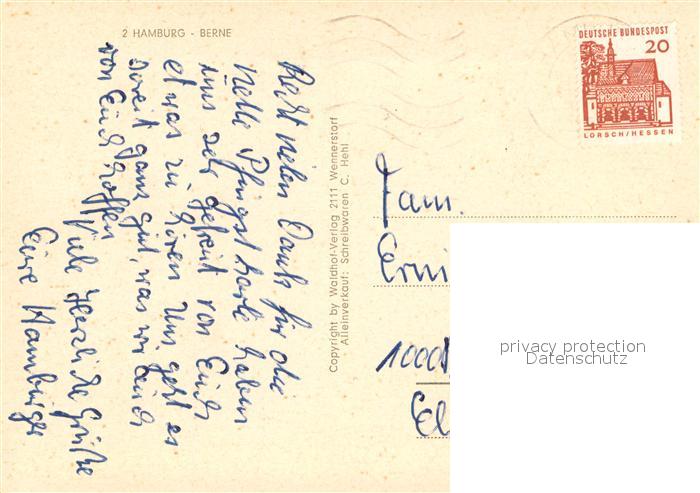 2 HAMBURG - BERNE
Recht vielen Dank für die
nette Pfingstkarte haben
uns sehr gefreut von Euch
etwas zu hören Uns geht es
soweit ganz gut, was wir auch
von Euch hoffen
Viele Herzliche Grüße
Eure Hamburger
Copyright by Waldhof-Verlag 2111 Wennerstorf
Alleinverkauf: Schreibwaren C. Hehl
DEUTSCHE BUNDESPOST
20
LORSCH/HESSEN
Fam.
Erni
1000
privacy protection
Datenschutz